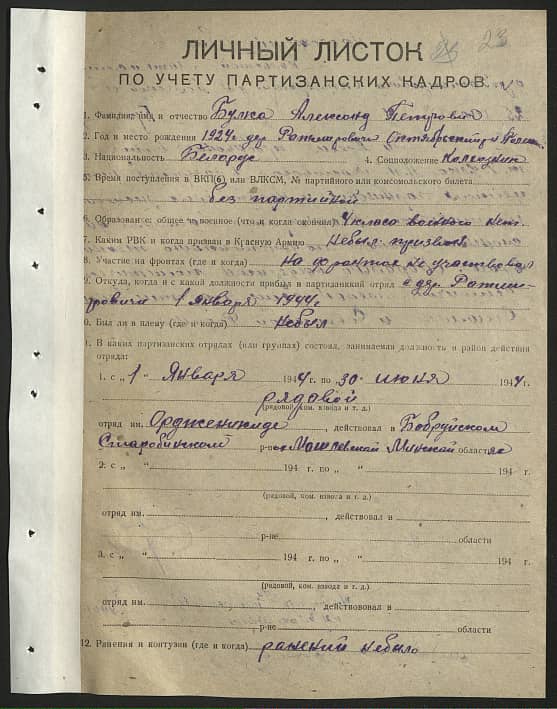 23
ЛИЧНЫЙ ЛИСТОК
ПО УЧЕТУ ПАРТИЗАНСКИХ КАДРОВ
1. Фамилия, имя и отчество Булка Александ Петрович
2. Год и место рождения 1924г дер. Ратмирович Октябрьский
3. Национальность Беларус 4. Соцположение Колхозник
5. Время поступления в ВКП(б) или ВЛКСМ, № партийного или комсомольского билета
без партийной
6. Образование: общее и военное (что и когда окончил) 4 класа воиного нет.
7. Каким РВК и когда призван в Красную Армию небыл призван
8. Участие на фронтах (где и когда) на фронтах не участвовал
9. Откуда, когда и с какой должности прибыл в партизанский отряд с дер. Ратми-
ровичи 1 января 1944г.
0. Был ли в плену (где и когда) небыл
1. В каких партизанских отрядах (или группах) состоял, занимаемая должность и район действия
отряда:
1. с „1 “ Января 1944 г. по 30 июня 1944 г.
рядовой
(рядовой, ком. взвода и т. д.)
отряд им. Орджоникидзе, действовал в Бобруйском
Старобинском р-не Минской области
2. с „ “ 194 г. по „ “ 194 г.
(рядовой, ком. взвода и т. д.)
отряд им. , действовал в
р-не области
3. с „ “ 194 г. по „ “ 194 г.
(рядовой, ком. взвода и т. д.)
отряд им. , действовал в
р-не области
12. Ранения и контузии (где и когда) ранений небыло